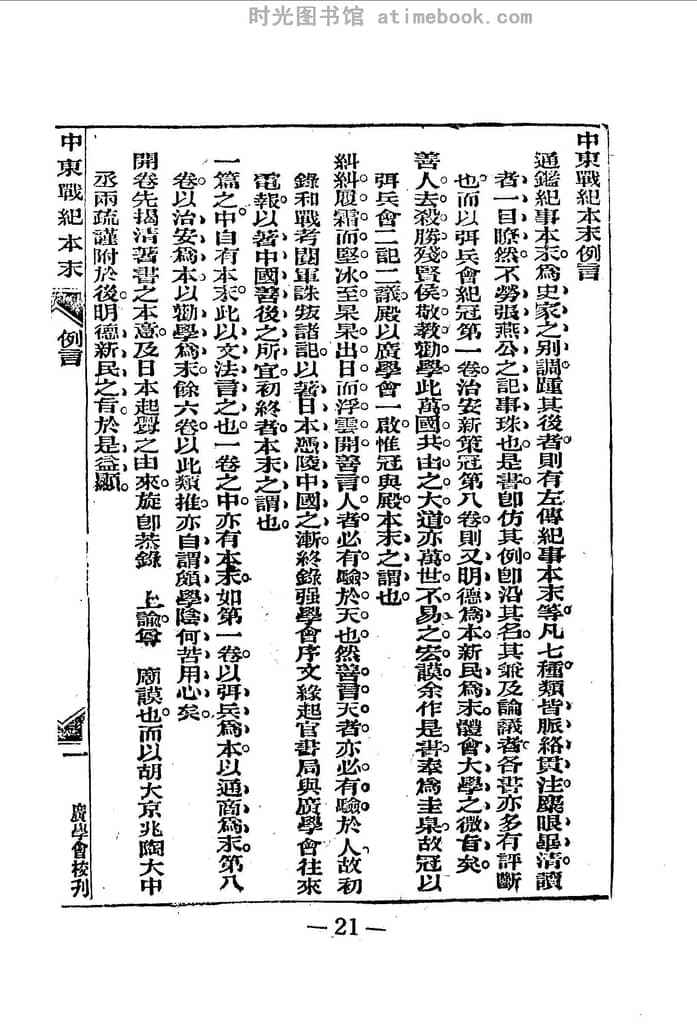 时光图书馆 atimebook.com
中東戰紀本末例言
通鑑紀事本末爲史家之別調踵其後者則有左傳紀事本末等凡七種類皆脈絡貫注麤眼畢淸讀
者一目瞭然不勞張燕公之記事珠也是書卽仿其例卽沿其名其兼及論議者各書亦多有評斷
也而以弭兵會紀冠第一卷治安新策冠第八卷則又明德爲本新民爲末體會大學之微旨矣
善人去殺勝殘賢侯敬教勸學此萬國共由之大道亦萬世不易之宏謨余作是書奉爲圭臬故冠以
弭兵會二記二議殿以廣學會一啟惟冠與殿本末之謂也
糾糾履霜而堅冰至杲杲出日而浮雲開善言人者必有驗於天也然善言天者亦必有驗於人故初
錄和戰考閱軍誅叛諸記以著日本憑陵中國之漸終錄强學會序文緣起官書局與廣學會往來
電報以著中國善後之所宜初終者本末之謂也
一篇之中自有本末此以文法言之也一卷之中亦有本末如第一卷以弭兵爲本以通商爲末第八
卷以治安爲本以勸學爲末餘六卷以此類推亦自謂頗學陰何苦用心矣
開卷先揭清著書之本意及日本起釁之由來旋卽恭錄 上諭尊 廟謨也而以胡大京兆陶大中
丞兩疏謹附於後明德新民之旨於是益顯
中東戰紀本末 例言 一 廣學會校刊
— 21 —